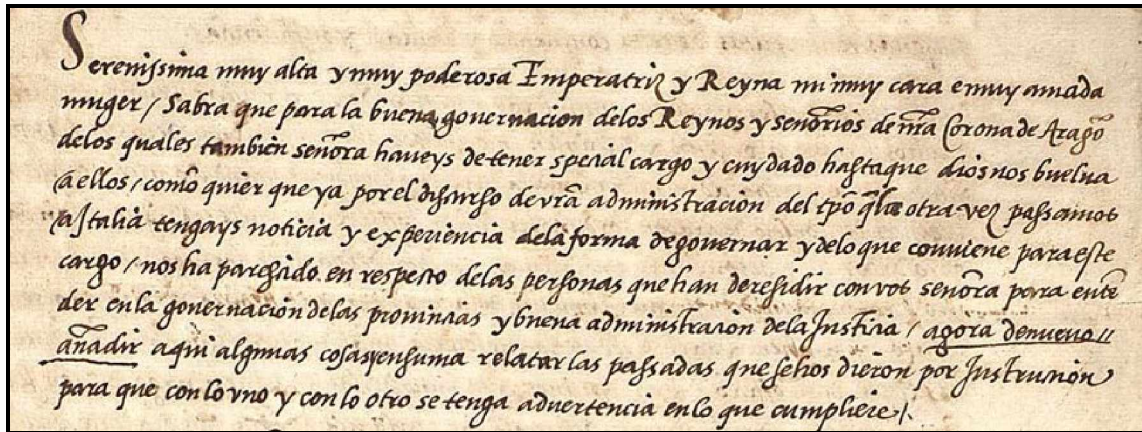 Serenissima muy alta y muy poderosa Emperatriz y Reyna mi muy cara e muy amada
muger / Sabra que para la buena governacion delos Reynos y señorios de nra Corona de Arago
delos quales tambien señora haveys de tener special cargo y cuydado hasta que dios nos buelva
a ellos / como quier que ya por el discurso de vra administracion del tpo q la otra vez passamos
a Italia tengays noticia y experiencia dela forma de governar y delo que conviene para este
cargo / nos ha parescido en respecto delas personas que han de residir con vos señora para enten
der en la governacion delas provincias y buena administracion dela Justicia / agora de nuevo //
añadir aqui algunas cosas y en suma relatar las passadas que se hos dieron por Instrucion
para que con lo uno y con lo otro se tenga advertencia en lo que cumpliere /.